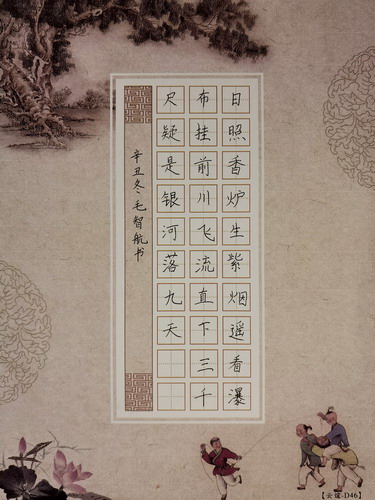 日照香炉生紫烟遥看瀑
布挂前川飞流直下三千
尺疑是银河落九天
辛丑冬毛智航书
【云笺-D46】